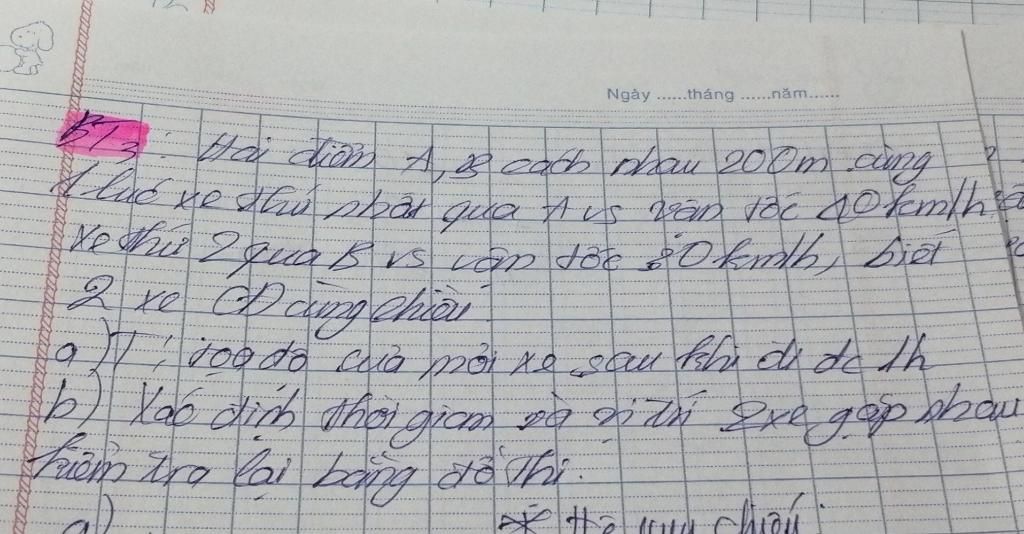 Ngày ......tháng ......năm......
BT3: Hai điểm A, B cách nhau 200m cùng
1 lúc xe thứ nhất qua A vs vận tốc 40km/h
xe thứ 2 qua B vs vận tốc 30km/h, biết
2 xe CĐ cùng chiều.
a) T; toạ độ của mỗi xe sau khi đi đc 1h
b) Xác định thời gian và vị trí 2 xe gặp nhau
kiểm tra lại bằng đồ thị.
a) * Hệ quy chiếu